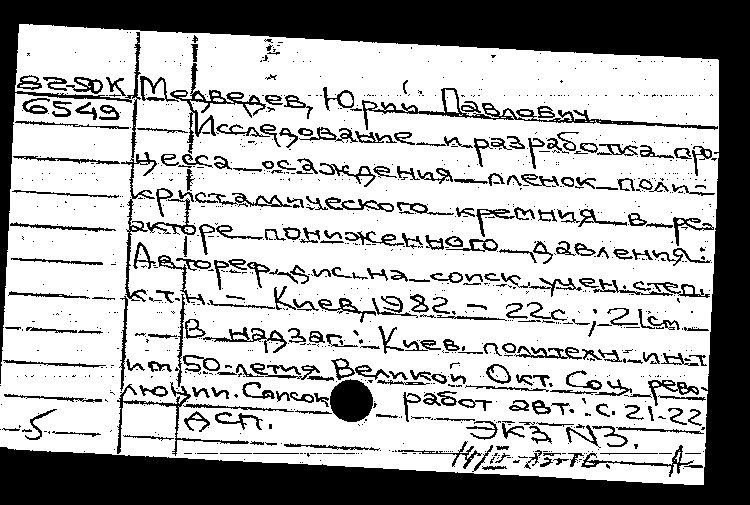 82-5DK Медведев, Юрий Павлович
6549
Исследование и разработка про-
цесса осаждения пленок поли-
кристаллического кремния в ре-
акторе пониженного давления:
Автореф. дис. на соиск. учен. степ.
к.т.н. - Киев, 1982. - 22с.; 21см
В надзаг.: Киев. политехн. ин-т
им. 50-летия Великой Окт. Соц. рево-
люции. Список работ авт.: с. 21-22
5 ДСП. ЭКЗ N3.
А